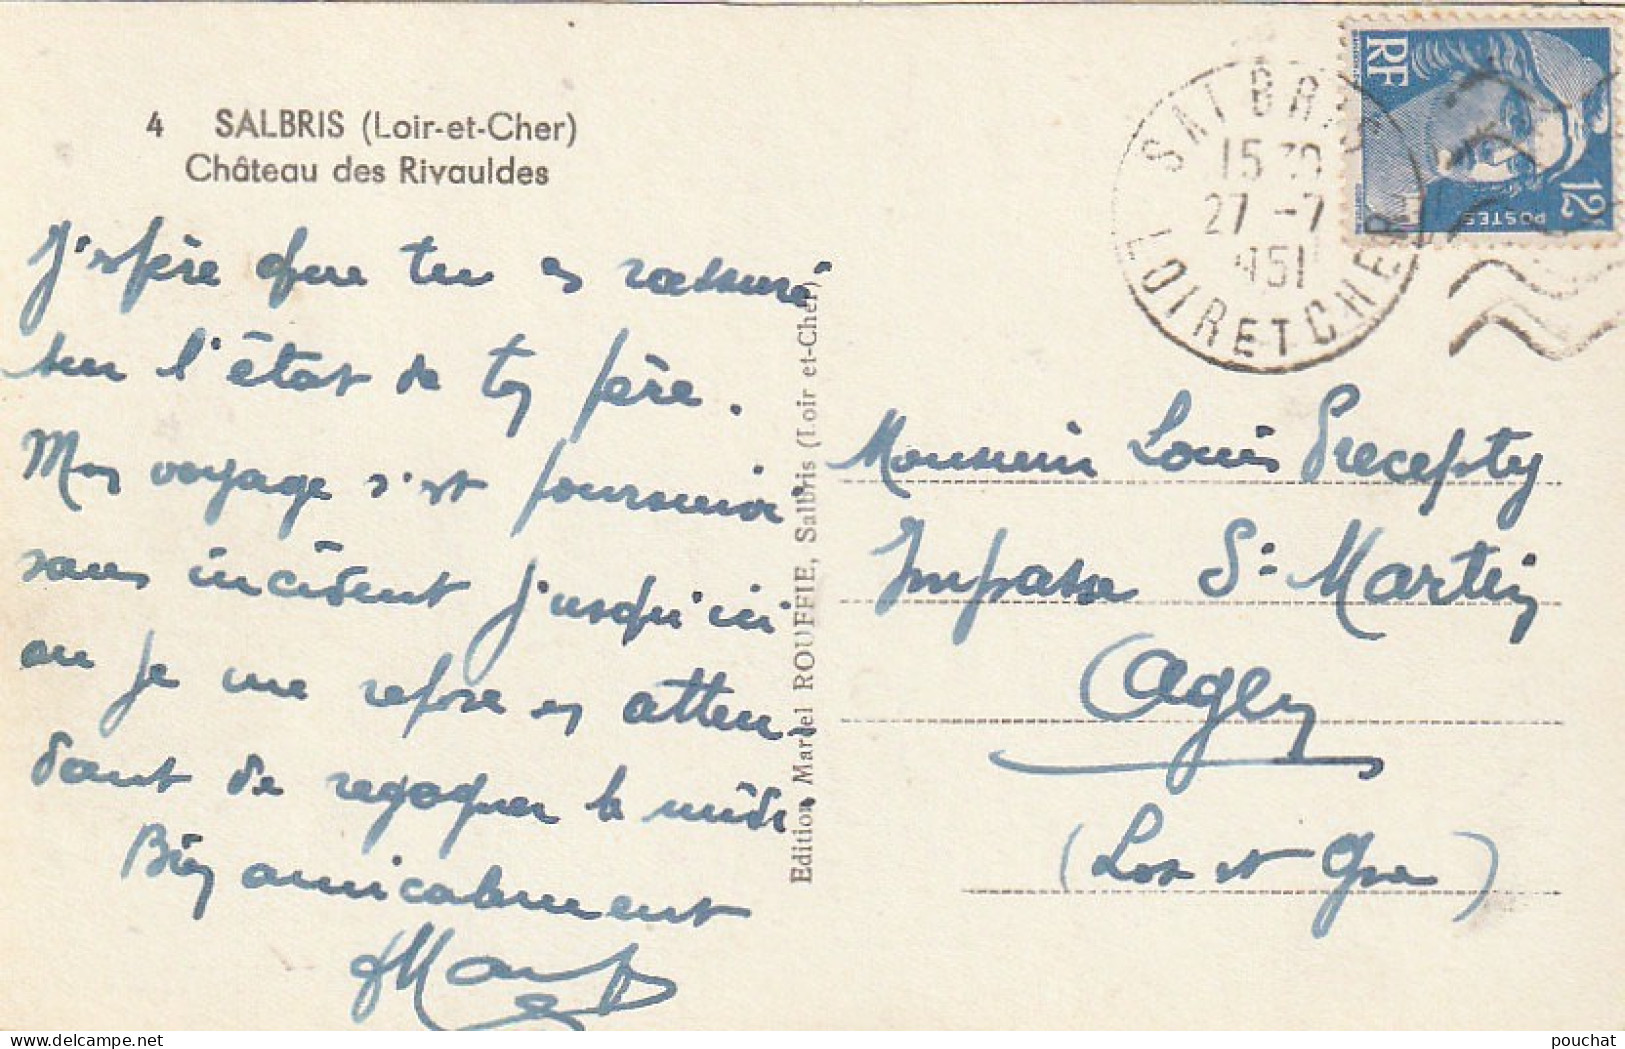 4 SALBRIS (Loir-et-Cher)
Château des Rivauldes
J'espère que tu es rassuré
sur l'état de ton père.
Mon voyage s'est poursuivi
sans incident jusqu'ici
ou je me repose en atten-
dant de regagner le midi.
Bien amicalement
Edition Marcel ROUFFIE, Salbris (Loir et-Cher)
SALBRIS
15 30
27 -7
1951
LOIR ET CHER
RF
POSTES
12F
Monsieur Louis Preceptis
Impasse St Martin
Agen
(Lot et Gne)
pouchat